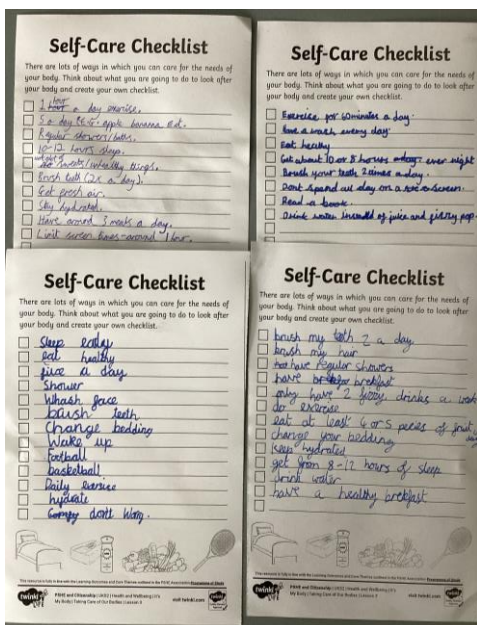 Self-Care Checklist
There are lots of ways in which you can care for the needs of
your body. Think about what you are going to do to look after
your body and create your own checklist.
1 hour a day exercise.
5 a day apple banana
Regular showers/baths.
10-12 hours sleep.
sweets/unhealthy things.
Brush teeth (2x a day).
Get fresh air.
Stay hydrated.
Have around 3 meals a day.
Limit screen times-around 1 hour.
Self-Care Checklist
There are lots of ways in which you can care for the needs of
your body. Think about what you are going to do to look after
your body and create your own checklist.
Exercise for 60minutes a day.
have a wash every day.
Eat healthy
Get about 10 or 8 hours ever night
Brush your teeth 2 times a day.
Dont spend all day on a screen.
Read a book.
Drink water insteald of juice and fizzy pop.
Self-Care Checklist
There are lots of ways in which you can care for the needs of
your body. Think about what you are going to do to look after
your body and create your own checklist.
Sleep ealay
eat healthy
juice a day
Shower
Whash face
brush teeth
Change bedding
Wake up
Football
basketball
Daily exersice
hydrate
dont worry.
twinkl
PSHE and Citizenship | UKS2 | Health and Wellbeing | It's
My Body | Taking Care of Our Bodies | Lesson 3
visit twinkl.com
Self-Care Checklist
There are lots of ways in which you can care for the needs of
your body. Think about what you are going to do to look after
your body and create your own checklist.
brush my teeth 2 a day
brush my hair
have regular showers
have breakfast
only have 2 fizzy drinks a week
do exercise
eat at least 4 or 5 pecies of fruit
change your bedding
keep hydrated
get from 8-12 hours of sleep
drink water
have a healthy brekfast
twinkl
PSHE and Citizenship | UKS2 | Health and Wellbeing | It's
My Body | Taking Care of Our Bodies | Lesson 3
visit twinkl.com